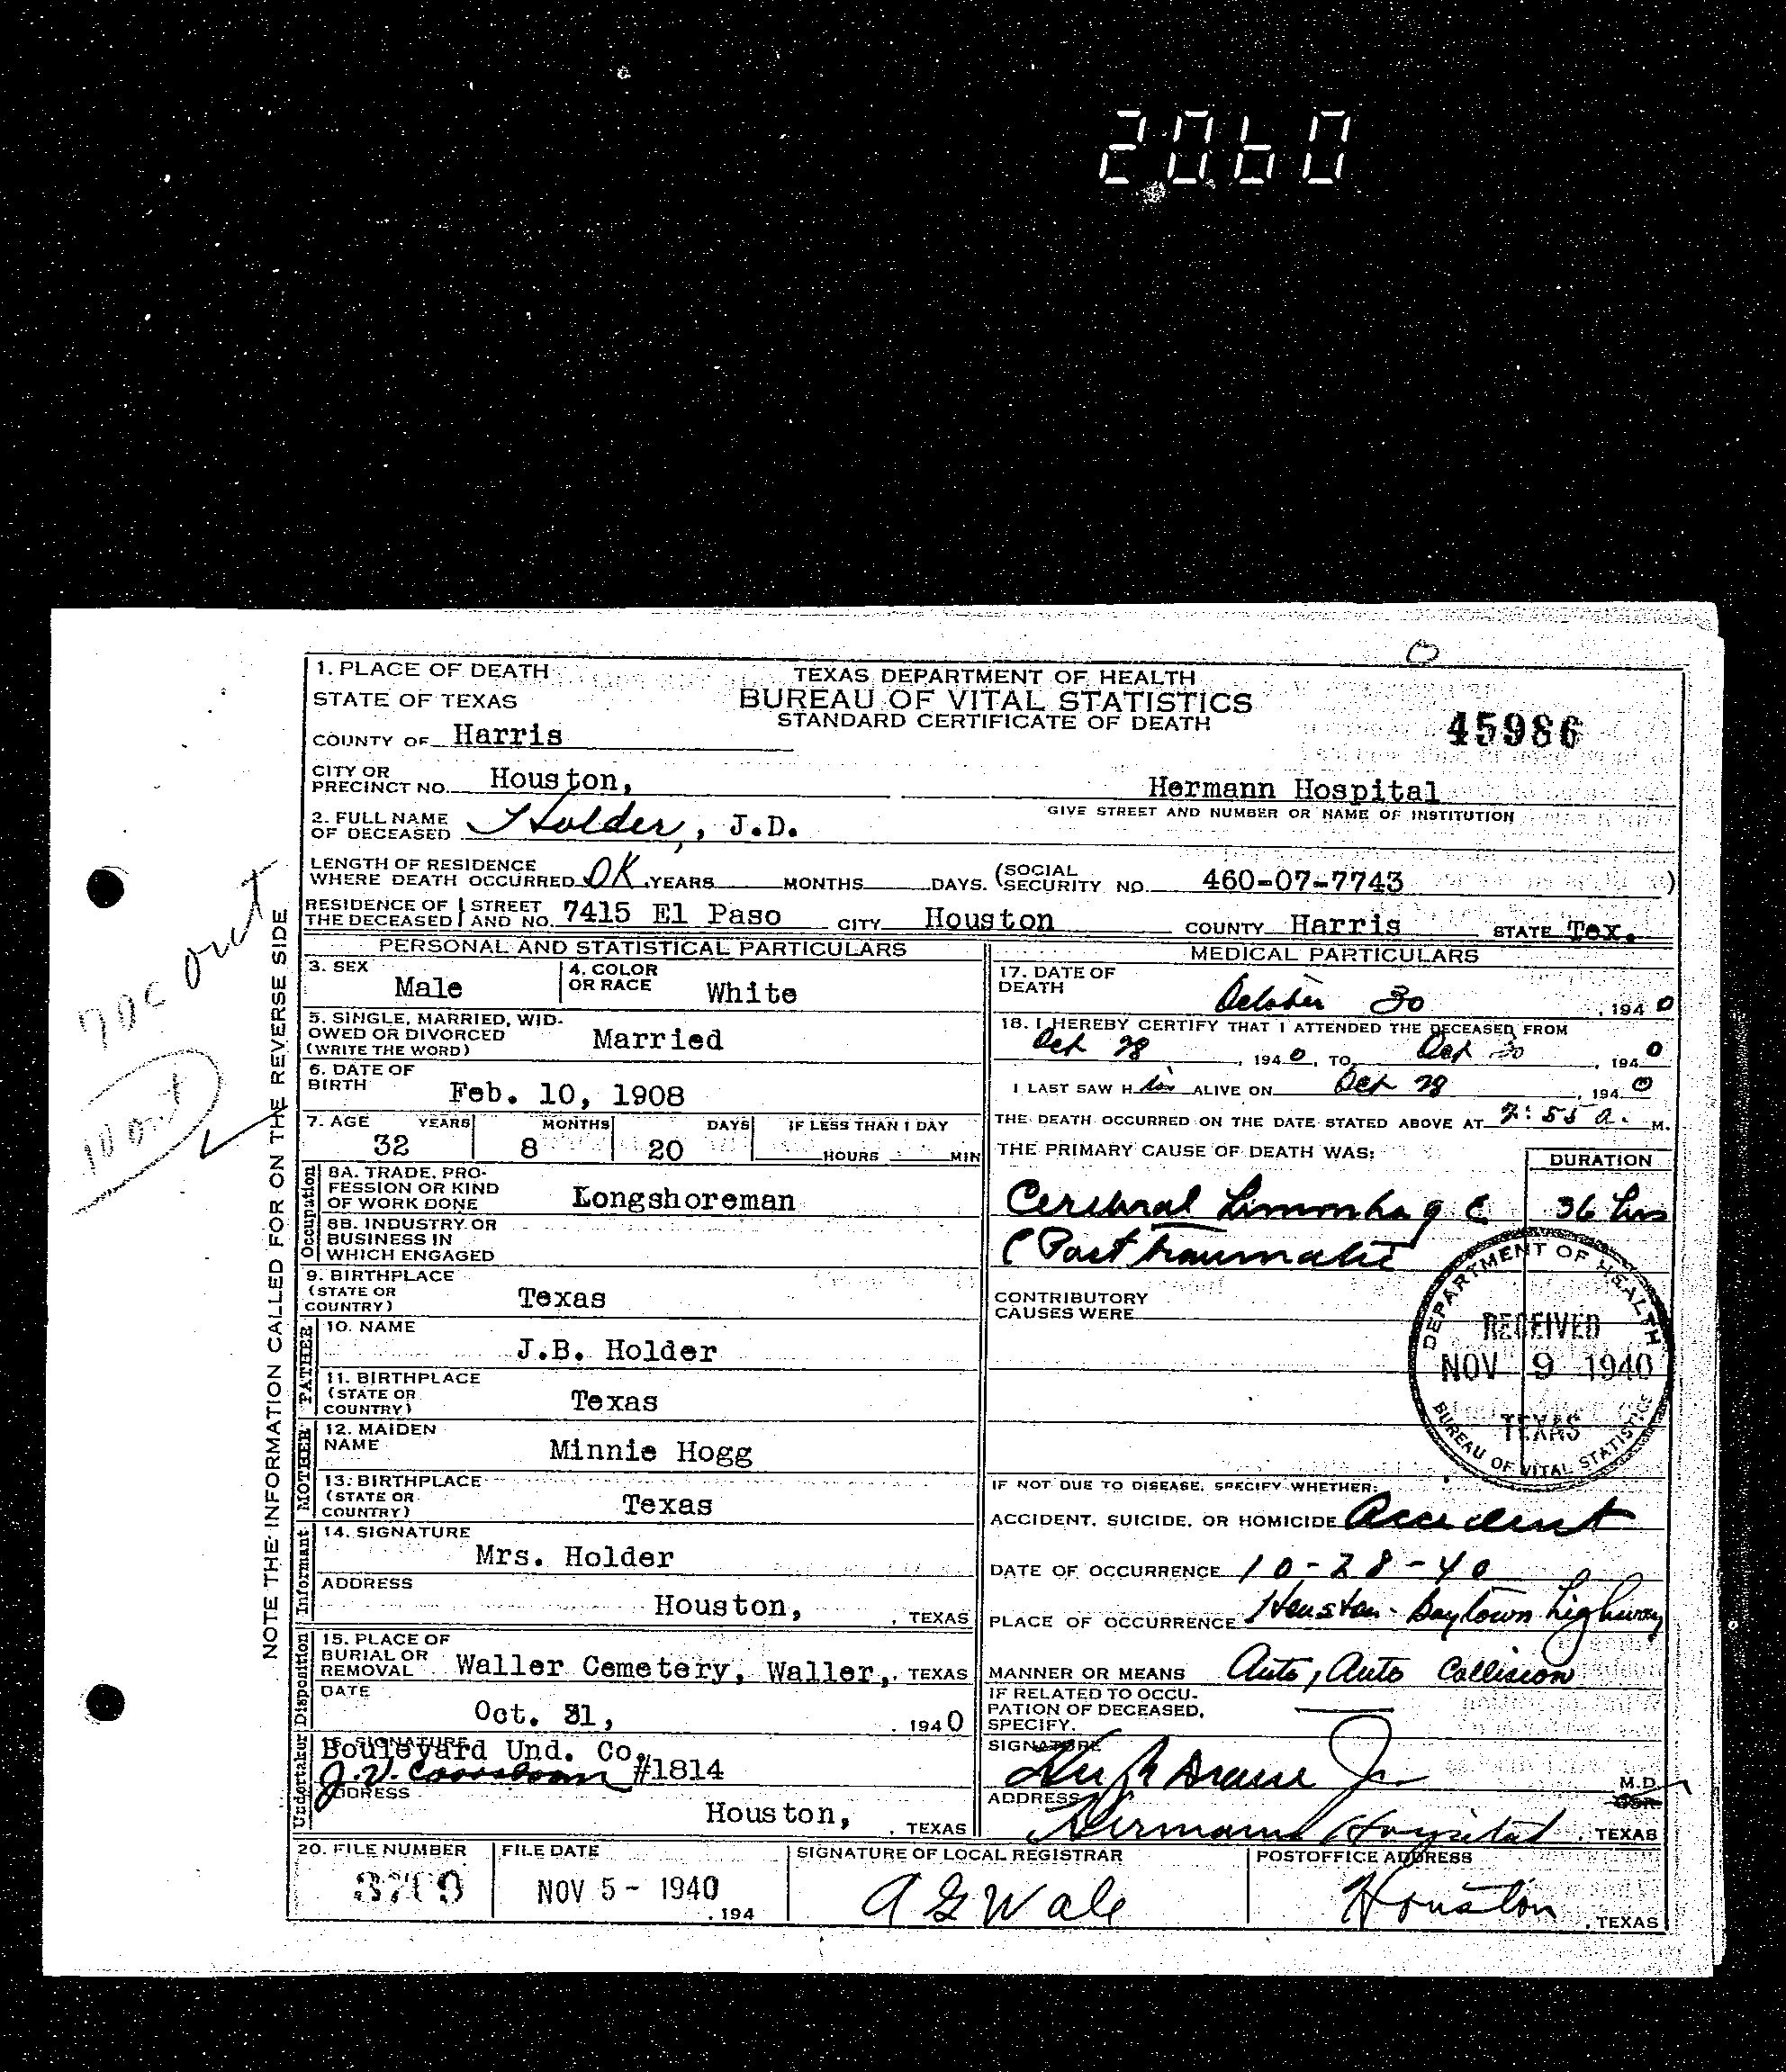 2060
1. PLACE OF DEATH
STATE OF TEXAS
COUNTY OF Harris
TEXAS DEPARTMENT OF HEALTH
BUREAU OF VITAL STATISTICS
STANDARD CERTIFICATE OF DEATH
45986
CITY OR PRECINCT NO. Houston,
Hermann Hospital
GIVE STREET AND NUMBER OR NAME OF INSTITUTION
2. FULL NAME OF DECEASED Holder, J.D.
LENGTH OF RESIDENCE WHERE DEATH OCCURRED OK YEARS MONTHS DAYS. (SOCIAL SECURITY NO. 460-07-7743 )
RESIDENCE OF THE DECEASED STREET AND NO. 7415 El Paso CITY Houston COUNTY Harris STATE Tex.
NOTE THE INFORMATION CALLED FOR ON THE REVERSE SIDE
PERSONAL AND STATISTICAL PARTICULARS
3. SEX Male
4. COLOR OR RACE White
5. SINGLE, MARRIED, WIDOWED OR DIVORCED (WRITE THE WORD) Married
6. DATE OF BIRTH Feb. 10, 1908
7. AGE YEARS MONTHS DAYS IF LESS THAN 1 DAY
32 8 20 HOURS MIN
Occupation
8A. TRADE, PROFESSION OR KIND OF WORK DONE Longshoreman
8B. INDUSTRY OR BUSINESS IN WHICH ENGAGED
9. BIRTHPLACE (STATE OR COUNTRY) Texas
FATHER
10. NAME J.B. Holder
11. BIRTHPLACE (STATE OR COUNTRY) Texas
MOTHER
12. MAIDEN NAME Minnie Hogg
13. BIRTHPLACE (STATE OR COUNTRY) Texas
Informant
14. SIGNATURE Mrs. Holder
ADDRESS Houston, , TEXAS
Disposition
15. PLACE OF BURIAL OR REMOVAL Waller Cemetery, Waller, , TEXAS
DATE Oct. 31, , 1940
Undertaker
16. SIGNATURE
Boulevard Und. Co.
#1814
ADDRESS Houston, , TEXAS
MEDICAL PARTICULARS
17. DATE OF DEATH October 30 , 1940
18. I HEREBY CERTIFY THAT I ATTENDED THE DECEASED FROM
Oct 28 , 1940, TO Oct 30 , 1940
I LAST SAW Him ALIVE ON Oct 28 , 1940
THE DEATH OCCURRED ON THE DATE STATED ABOVE AT 7:55 a. M.
THE PRIMARY CAUSE OF DEATH WAS: DURATION
Cerebral hemorrhage 36 hrs
(Post traumatic
CONTRIBUTORY CAUSES WERE
DEPARTMENT OF HEALTH
RECEIVED
NOV 9 1940
TEXAS
BUREAU OF VITAL STATISTICS
IF NOT DUE TO DISEASE, SPECIFY WHETHER:
ACCIDENT, SUICIDE, OR HOMICIDE Accident
DATE OF OCCURRENCE 10-28-40
PLACE OF OCCURRENCE Houston-Baytown highway
MANNER OR MEANS Auto, Auto Collision
IF RELATED TO OCCUPATION OF DECEASED, SPECIFY.
SIGNATURE Jr. M.D.
ADDRESS Hermann Hospital , TEXAS
20. FILE NUMBER 3709
FILE DATE NOV 5 - 1940 , 194
SIGNATURE OF LOCAL REGISTRAR
A G Wale
POSTOFFICE ADDRESS
Houston , TEXAS